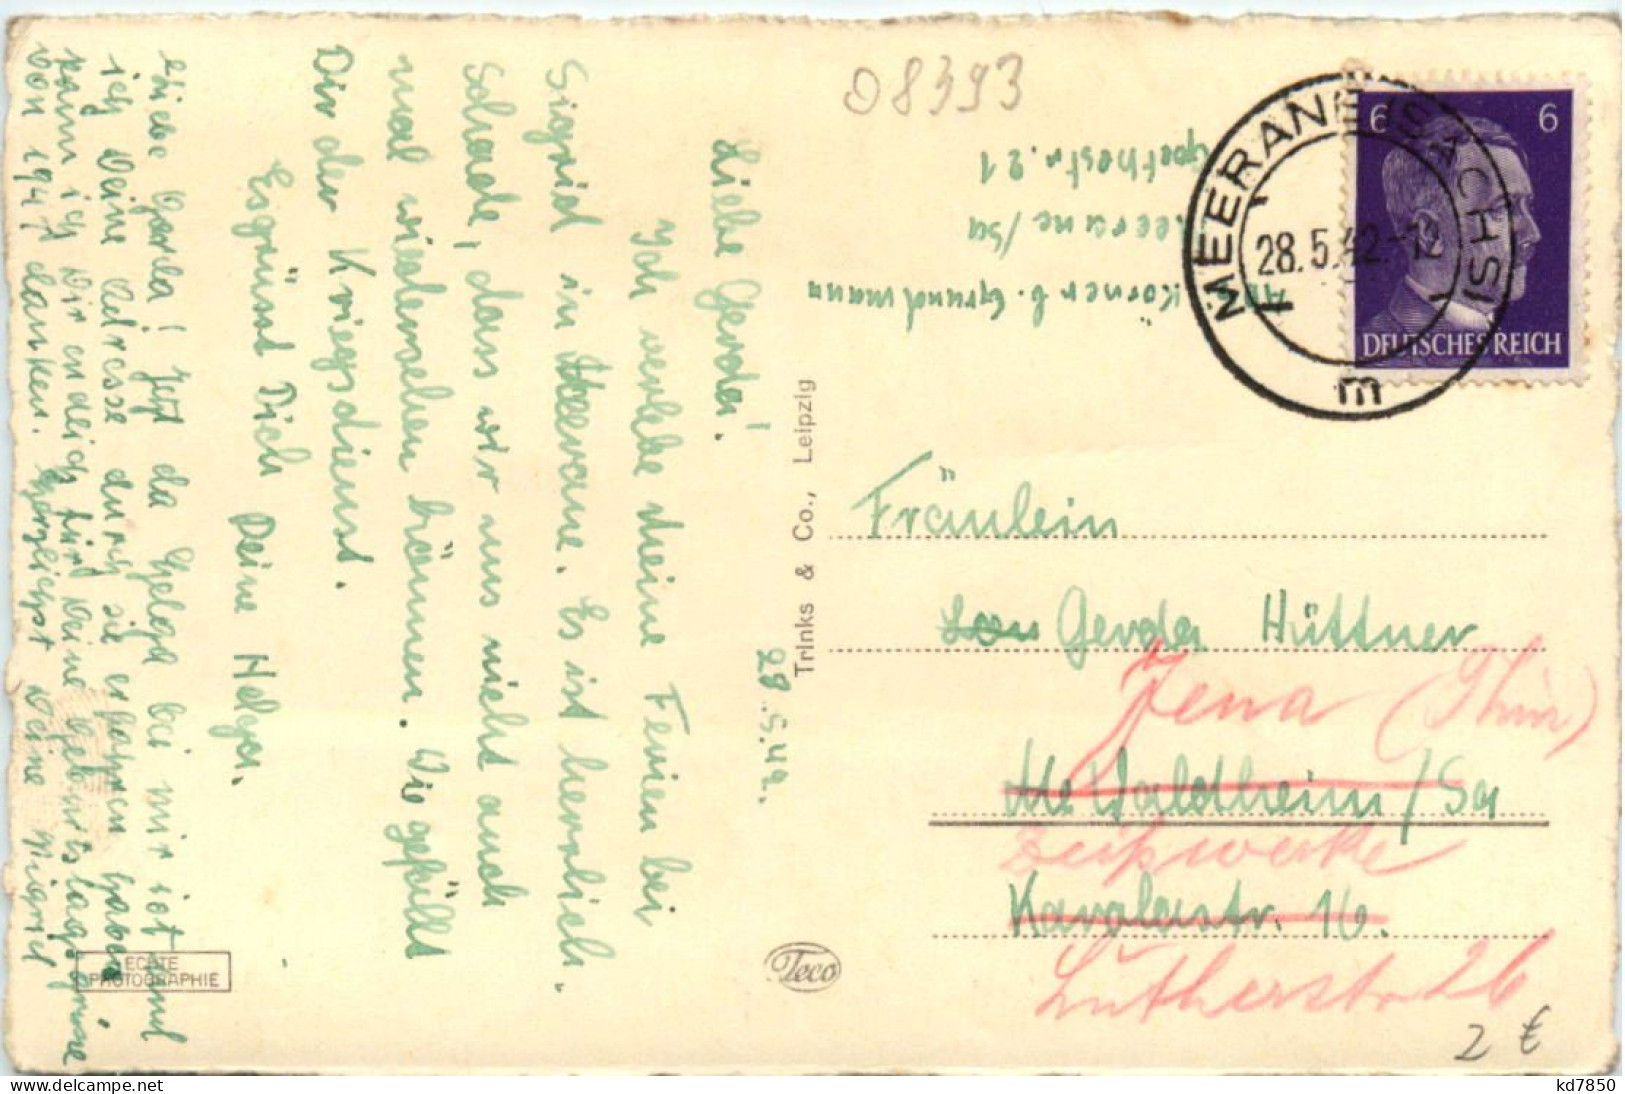 08393
Liebe Gerda!
Ich verlebe meine Ferien bei
Sigrid in Meerane. Es ist herrlich.
Schade, dass wir uns nicht auch
mal wiedersehen können. Wie gefällt
Dir der Kriegsdienst.
Es grüsst Dich Deine Helga.
Liebe Gerda! Jetzt da Helga bei mir ist und
ich Deine Adresse durch sie erfahren habe
kann ich Dir endlich für Deine Geburtstagsgrüsse
von 1941 danken. Herzlichst Deine Sigrid
28.5.42.
ECHTE
PHOTOGRAPHIE
Trinks & Co., Leipzig
Teco
Abs. Körner b. Grundmann
Meerane/Sa
Goethestr. 21
MEERANE (SACHS)
28.5.42.-12
m
6 6
DEUTSCHES REICH
Fräulein
Gerda Hüttner
Jena (Thür)
Waldheim/Sa
Zeisswerke
Karolastr. 16.
Lutherstr 26
2 €
kd7850